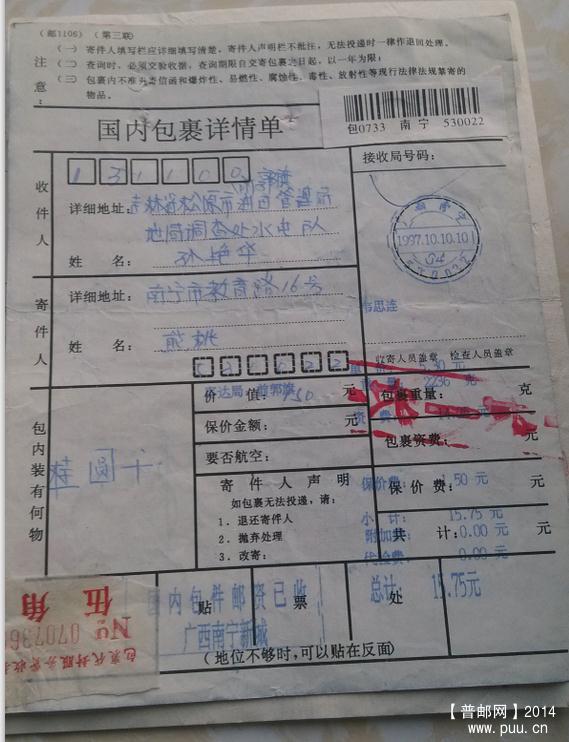 (邮1106) (第三联)
注意:
(一) 寄件人填写栏应详细填写清楚,寄件人声明栏不批注,无法投递时一律作退回处理。
(二) 查询时,必须交验收据,查询期限自交寄包裹之日起,以一年为限;
(三) 包裹内不准夹寄信函和爆炸性、易燃性、腐蚀性、毒性、放射性等现行法律法规禁寄的
物品。
国内包裹详情单
包0733 南宁 530022
接收局号码:
收件人
131100
详细地址: 吉林省松原市油田管理局
地质调查处水电队
姓 名: 孙艳华
南宁
1997.10.10.10
寄件人
详细地址: 南宁市教育路16号
姓 名: 熊桃
530022
韦思连
收寄人员盖章 检查人员盖章
5.30 元
寄达局 前郭旗
价 值: 元
2236 克
包裹重量: 克
保价金额: 元
包裹资费: 元
要否航空:
包内装有何物
桂圆干
寄件人声明
如包裹无法投递,请:
1. 退还寄件人
2. 抛弃处理
3. 改寄:
保价费: 1.50 元
保 价 费: 元
小 计: 15.75 元
附加费: 0.00 元
共 计: 元
0.00 元
总计: 15.75元
贴 票 处
国内包件邮资已收
广西南宁新城
(地位不够时,可以贴在反面)
伍角
No 070736
【普邮网】2014
www.puu.cn